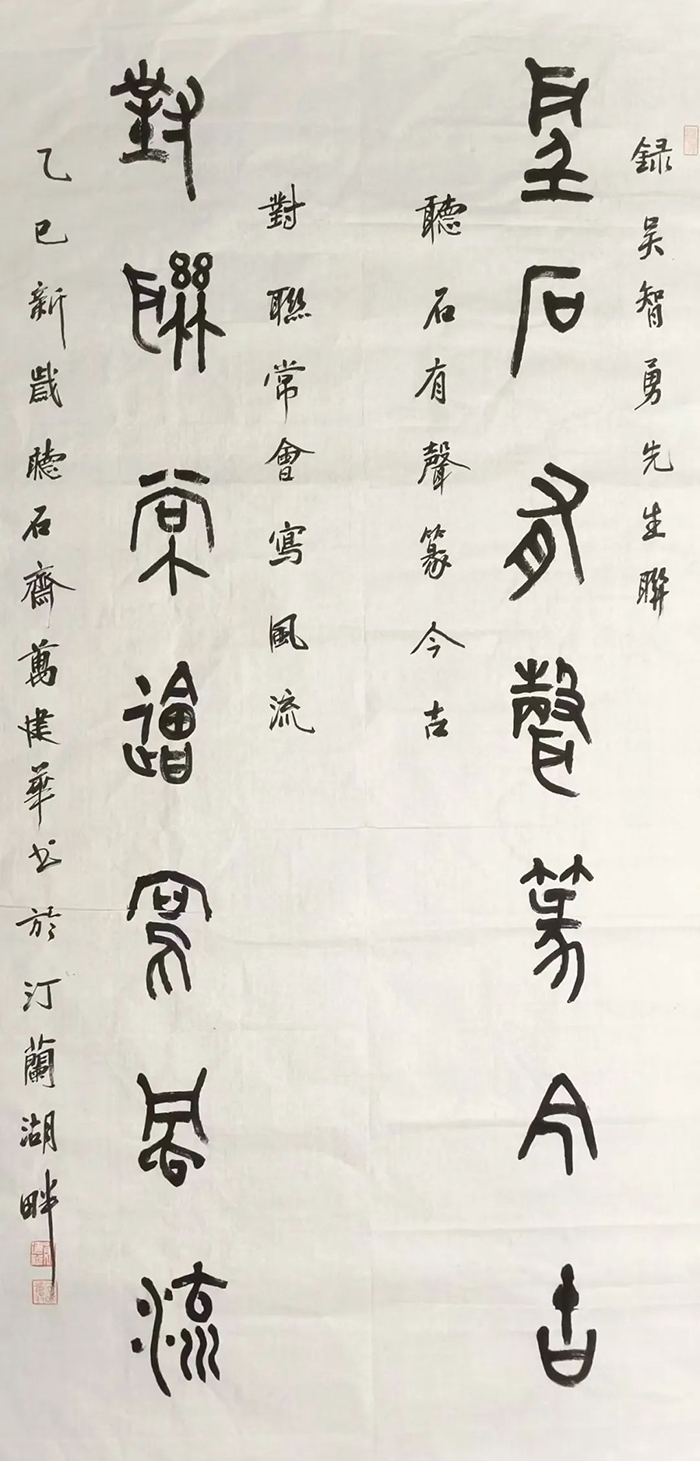 録吴智勇先生聯
聽石有聲篆今古
聽石有聲篆今古
對聯常會寫風流
對聯常會寫風流
乙巳新歲聽石齋萬建華书於汀蘭湖畔